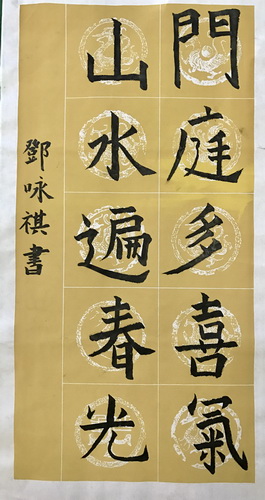 門庭多喜氣
山水遍春光
鄧咏祺書